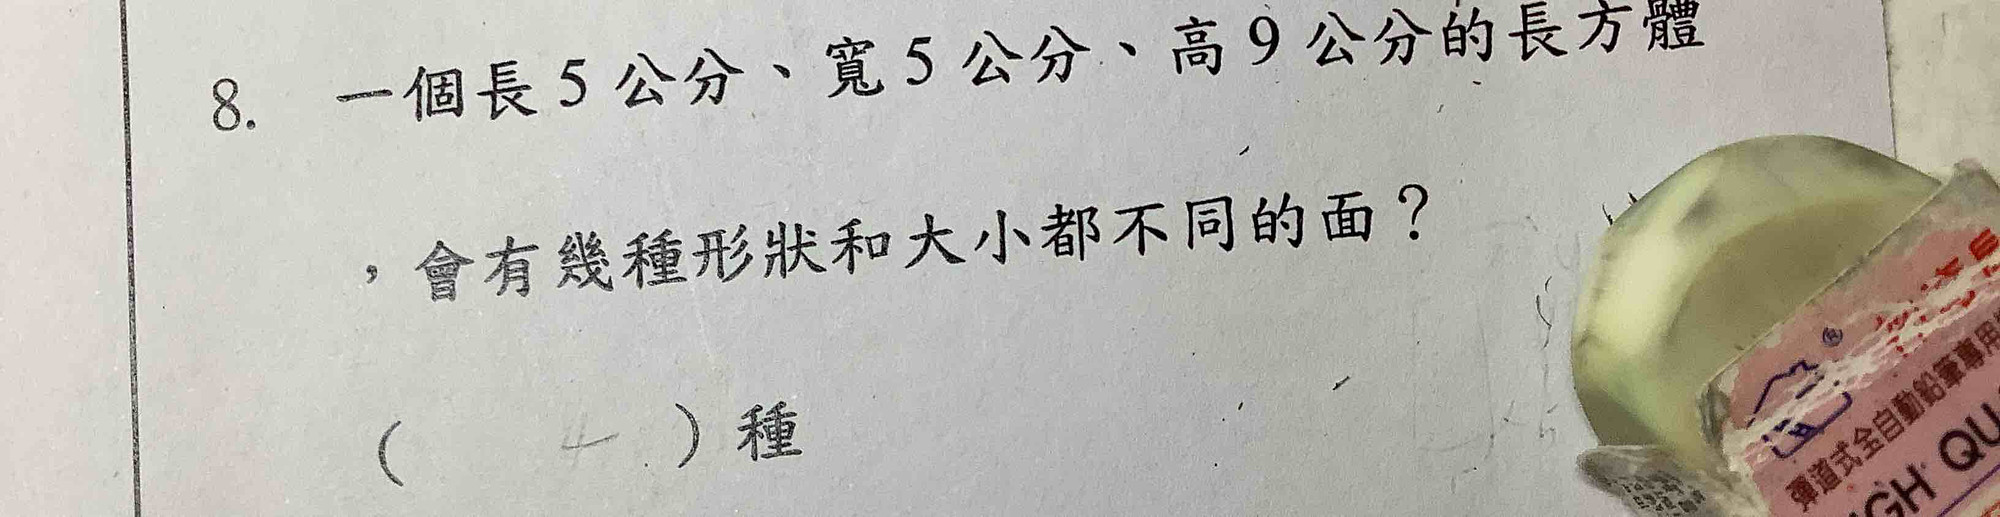 8. 一個長5公分、寬5公分、高9公分的長方體
，會有幾種形狀和大小都不同的面？
( 4 )種
彈道式全自動鉛筆專用
GH QU